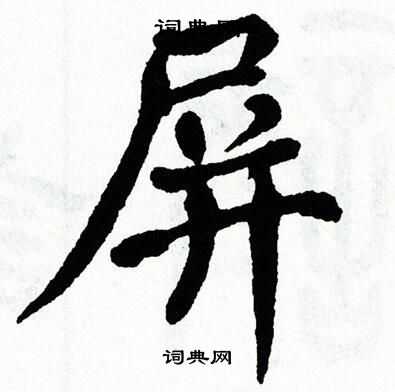 词典网
屏
词典网